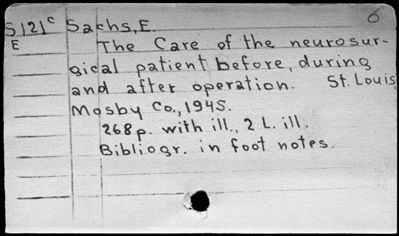 S121c Sachs, E. 6
E
The Care of the neurosur-
gical patient before, during
and after operation. St. Louis,
Mosby Co., 1945.
268 p. with ill., 2 L. ill.
Bibliogr. in foot notes.